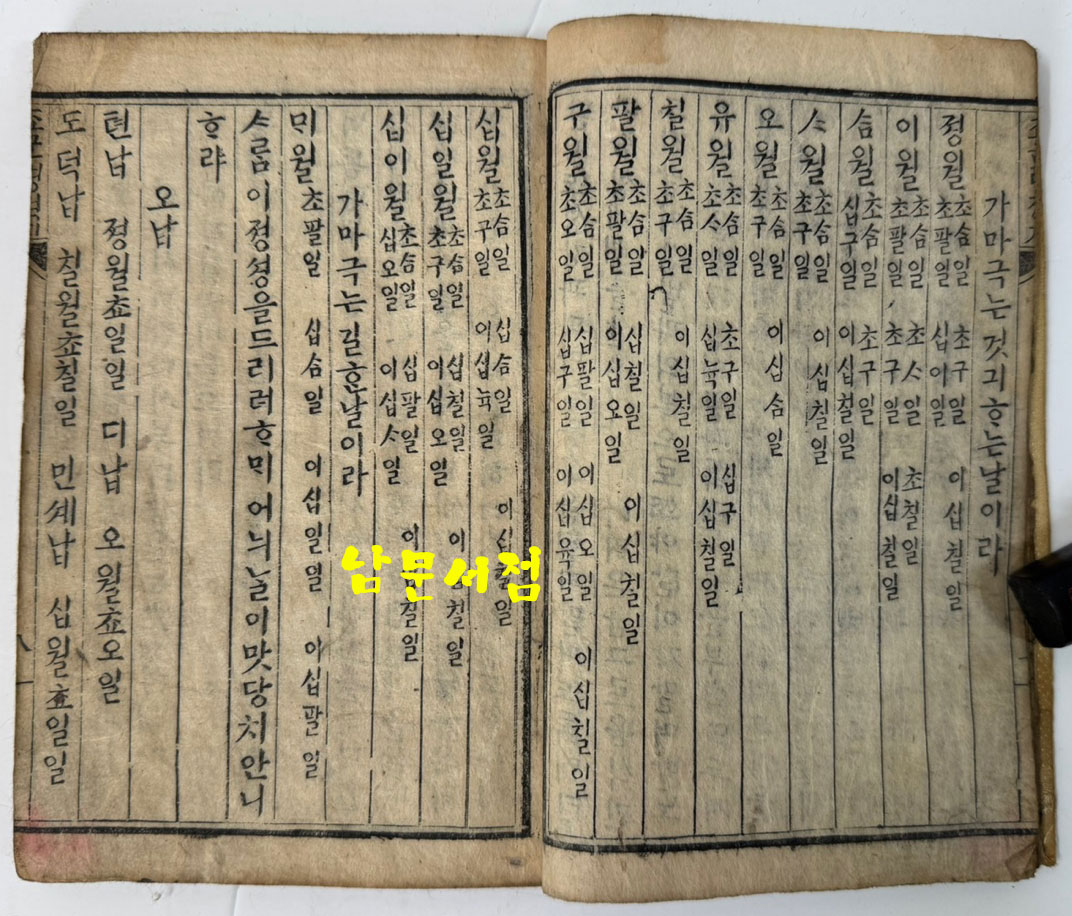 가마극는것긔ᄒᆞ는날이라
졍월 초ᄉᆞᆷ일 초구일 이십칠일
초팔일 십이일
이월 초ᄉᆞᆷ일 초ᄉᆞ일 초칠일
초팔일 초구일 이십칠일
ᄉᆞᆷ월 초ᄉᆞᆷ일 초구일
십구일 이십칠일
ᄉᆞ월 초ᄉᆞᆷ일 이십칠일
초구일
오월 초ᄉᆞᆷ일 이십ᄉᆞᆷ일
초구일
유월 초ᄉᆞᆷ일 초구일 십구일
초ᄉᆞ일 십뉵일 이십칠일
칠월 초ᄉᆞᆷ일 이십칠일
초구일
팔월 초ᄉᆞᆷ일 십칠일 이십칠일
초팔일 이십오일
구월 초ᄉᆞᆷ일 십팔일 이십오일 이십칠일
초오일 십구일 이십육일
십월 초ᄉᆞᆷ일 십ᄉᆞᆷ일 이십칠일
초구일 이십뉵일
십일월 초ᄉᆞᆷ일 십칠일 이십칠일
초구일 이십오일
십이월 초ᄉᆞᆷ일 십팔일 이십칠일
십오일 이십ᄉᆞ일
가마극는길ᄒᆞᆫ날이라
ᄆᆡ월 초팔일 십ᄉᆞᆷ일 이십일일 이십팔일
ᄉᆞ름이졍셩을드리러ᄒᆞᄆᆡ어늬날이맛당치안니
ᄒᆞ랴
오납
텬납 졍월쵸일일 디납 오월쵸오일
도덕납 칠월쵸칠일 민셰납 십월쵸일일
남문서점